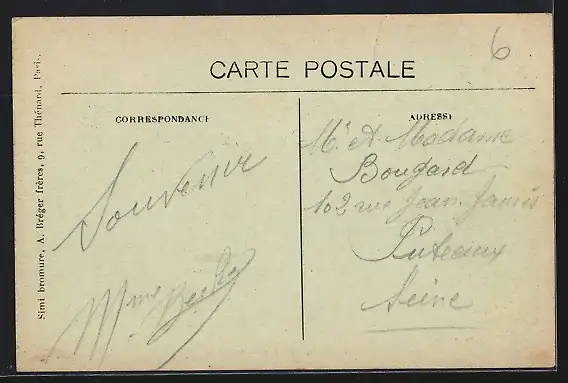 6
CARTE POSTALE
CORRESPONDANCE
ADRESSE
Simi bromure, A. Bréger frères, 9, rue Thénard, Paris.
Souvenir
Mme
Mr et Madame
Bougard
102 rue Jean Jaurès
Puteaux
Seine